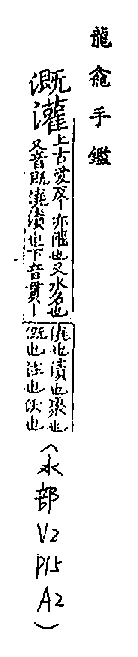 龍龕手鑑
溉灌
上古愛反亦滌也又水名也澆也漬也聚也
又音既澆漬也下音貫丨溉也注也沃也
(水部 V2 P15 A2)